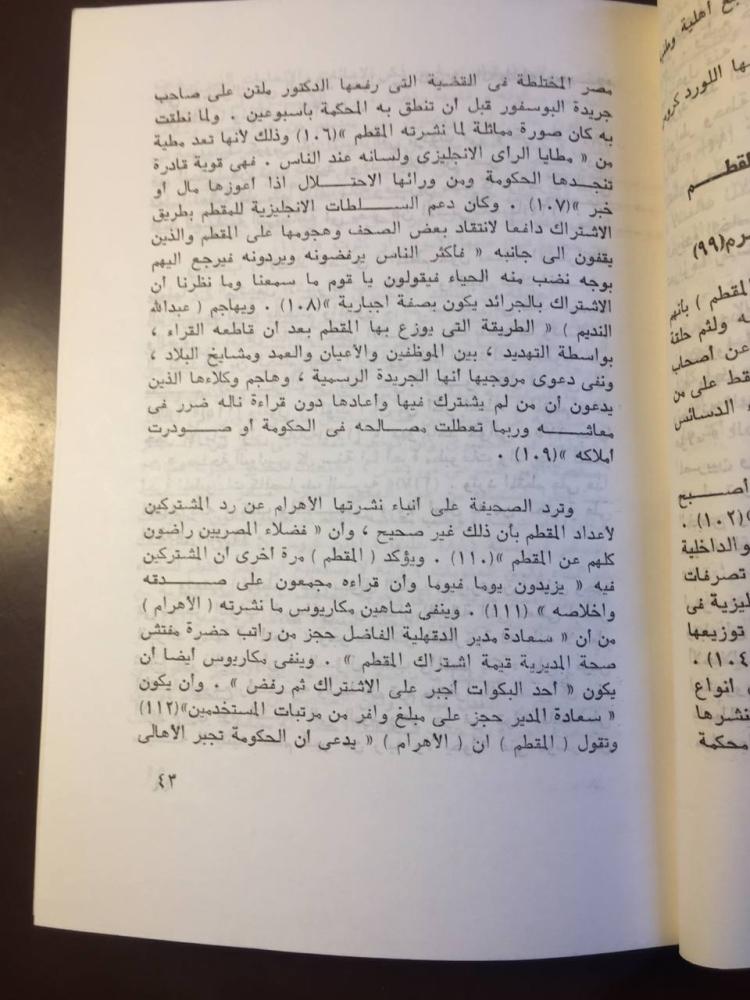 مصر المختلطة فى القضية التى رفعها الدكتور ملتن على صاحب
جريدة البوسفور قبل أن تنطق به المحكمة بأسبوعين . ولما نطقت
به كان صورة مماثلة لما نشرته المقطم »(١٠٦) وذلك لأنها تعد مطية
من « مطايا الرأى الانجليزى ولسانه عند الناس . فهى قوية قادرة
تنجدها الحكومة ومن ورائها الاحتلال اذا أعوزها مال أو
خبر »(١٠٧) . وكان دعم السلطات الانجليزية للمقطم بطريق
الاشتراك دافعا لانتقاد بعض الصحف وهجومها على المقطم والذين
يقفون الى جانبه « فأكثر الناس يرفضونه ويردونه فيرجع اليهم
بوجه نضب منه الحياء فيقولون يا قوم ما سمعنا وما نظرنا أن
الاشتراك بالجرائد يكون بصفة اجبارية »(١٠٨) . ويهاجم ( عبدالله
النديم ) « الطريقة التى يوزع بها المقطم بعد أن قاطعه القراء ،
بواسطة التهديد ، بين الموظفين والأعيان والعمد ومشايخ البلاد ،
ونفى دعوى مروجيها أنها الجريدة الرسمية ، وهاجم وكلاءها الذين
يدعون أن من لم يشترك فيها وأعادها دون قراءة ناله ضرر فى
معاشه وربما تعطلت مصالحه فى الحكومة أو صودرت
أملاكه »(١٠٩) .
وترد الصحيفة على أنباء نشرتها الأهرام عن رد المشتركين
لأعداد المقطم بأن ذلك غير صحيح ، وأن « فضلاء المصريين راضون
كلهم عن المقطم »(١١٠) . ويؤكد ( المقطم ) مرة أخرى أن المشتركين
فيه « يزيدون يوما فيوما وأن قراءه مجمعون على صدقه
واخلاصه » (١١١) . وينفى شاهين مكاريوس ما نشرته ( الأهرام )
من أن « سعادة مدير الدقهلية الفاضل حجز من راتب حضرة مفتش
صحة المديرية قيمة اشتراك المقطم » . وينفى مكاريوس أيضا أن
يكون « أحد البكوات أجبر على الاشتراك ثم رفض » . وأن يكون
« سعادة المدير حجز على مبلغ وافر من مرتبات المستخدمين»(١١٢)
وتقول ( المقطم ) ان ( الأهرام ) « يدعى أن الحكومة تجبر الأهالى
٤٣
أهلية
ها اللورد
لقطم
(٩٩)
المقطم ) بأنهم
ه ولثم حلقة
عن أصحاب
فقط على من
الدسائس
أصبح
»(١٠٢) .
و الداخلية
تصرفات
ليزية فى
توزيعها
أنواع
نشرها
محكمة